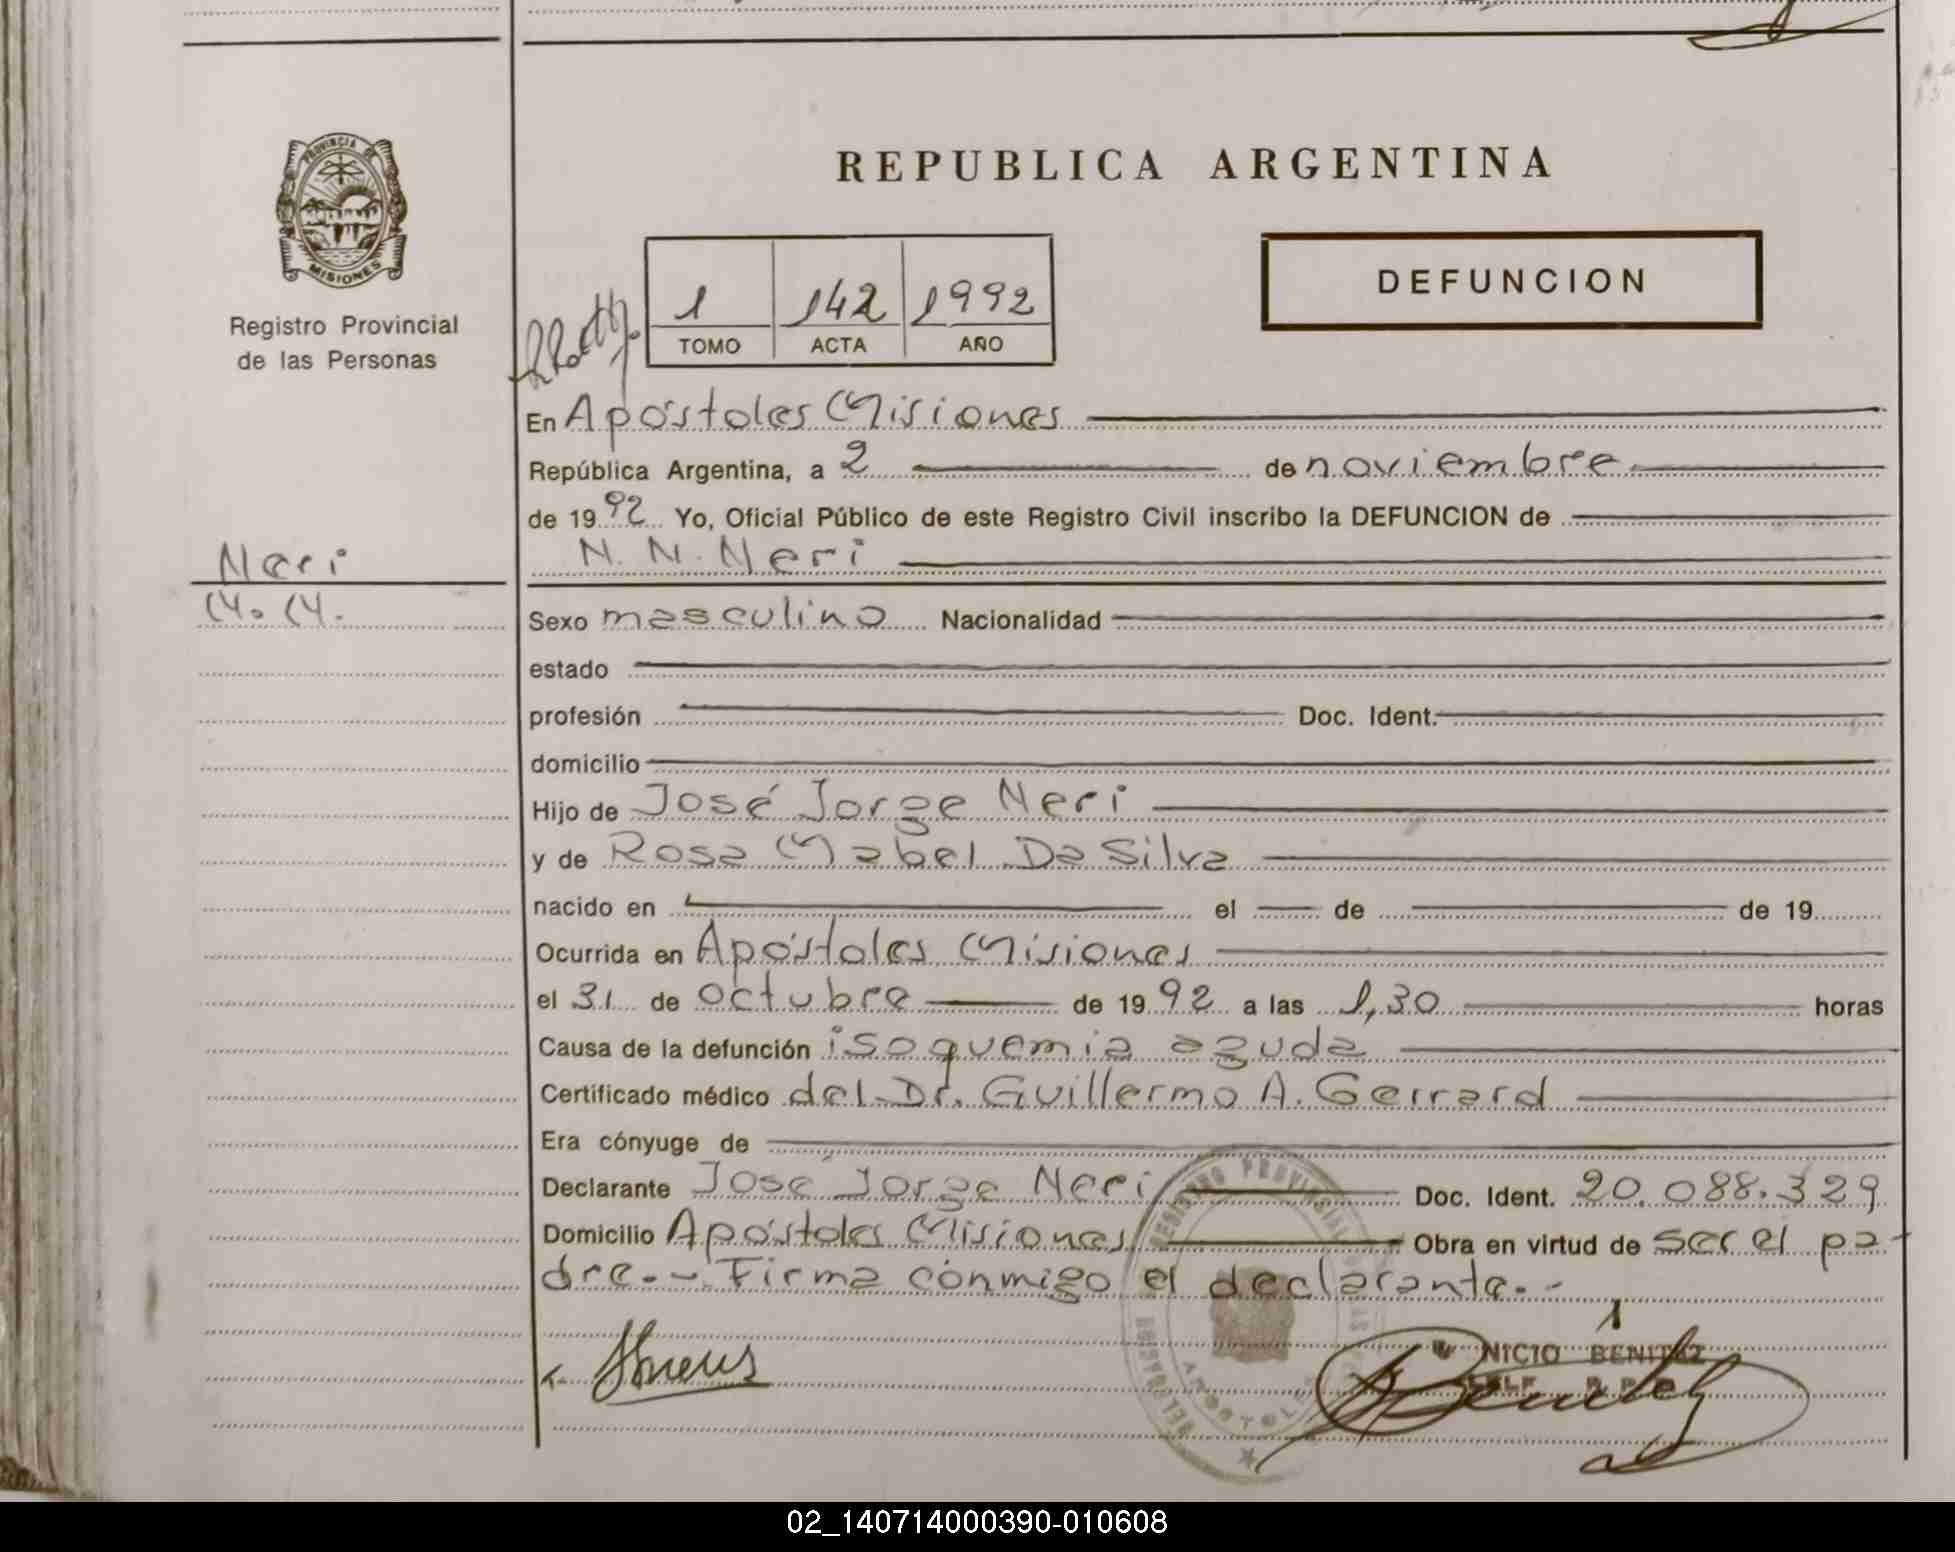 PROVINCIA DE
MISIONES
Registro Provincial
de las Personas
REPUBLICA ARGENTINA
DEFUNCION
1 142 1992
TOMO ACTA AÑO
En Apóstoles Misiones
República Argentina, a 2 de noviembre
de 1992 Yo, Oficial Público de este Registro Civil inscribo la DEFUNCION de
N. N. Neri
Neri
N. N.
Sexo masculino Nacionalidad
estado
profesión Doc. Ident.
domicilio
Hijo de José Jorge Neri
y de Rosa Mabel Da Silva
nacido en el de de 19
Ocurrida en Apóstoles Misiones
el 31 de octubre de 1992 a las 1,30 horas
Causa de la defunción isoquemia aguda
Certificado médico del Dr. Guillermo A. Gerrard
Era cónyuge de
Declarante José Jorge Neri Doc. Ident. 20.088.329
Domicilio Apóstoles Misiones Obra en virtud de ser el pa-
dre.- Firma conmigo el declarante.-
REGISTRO PROVINCIAL
NICIO BENITEZ
02_140714000390-010608